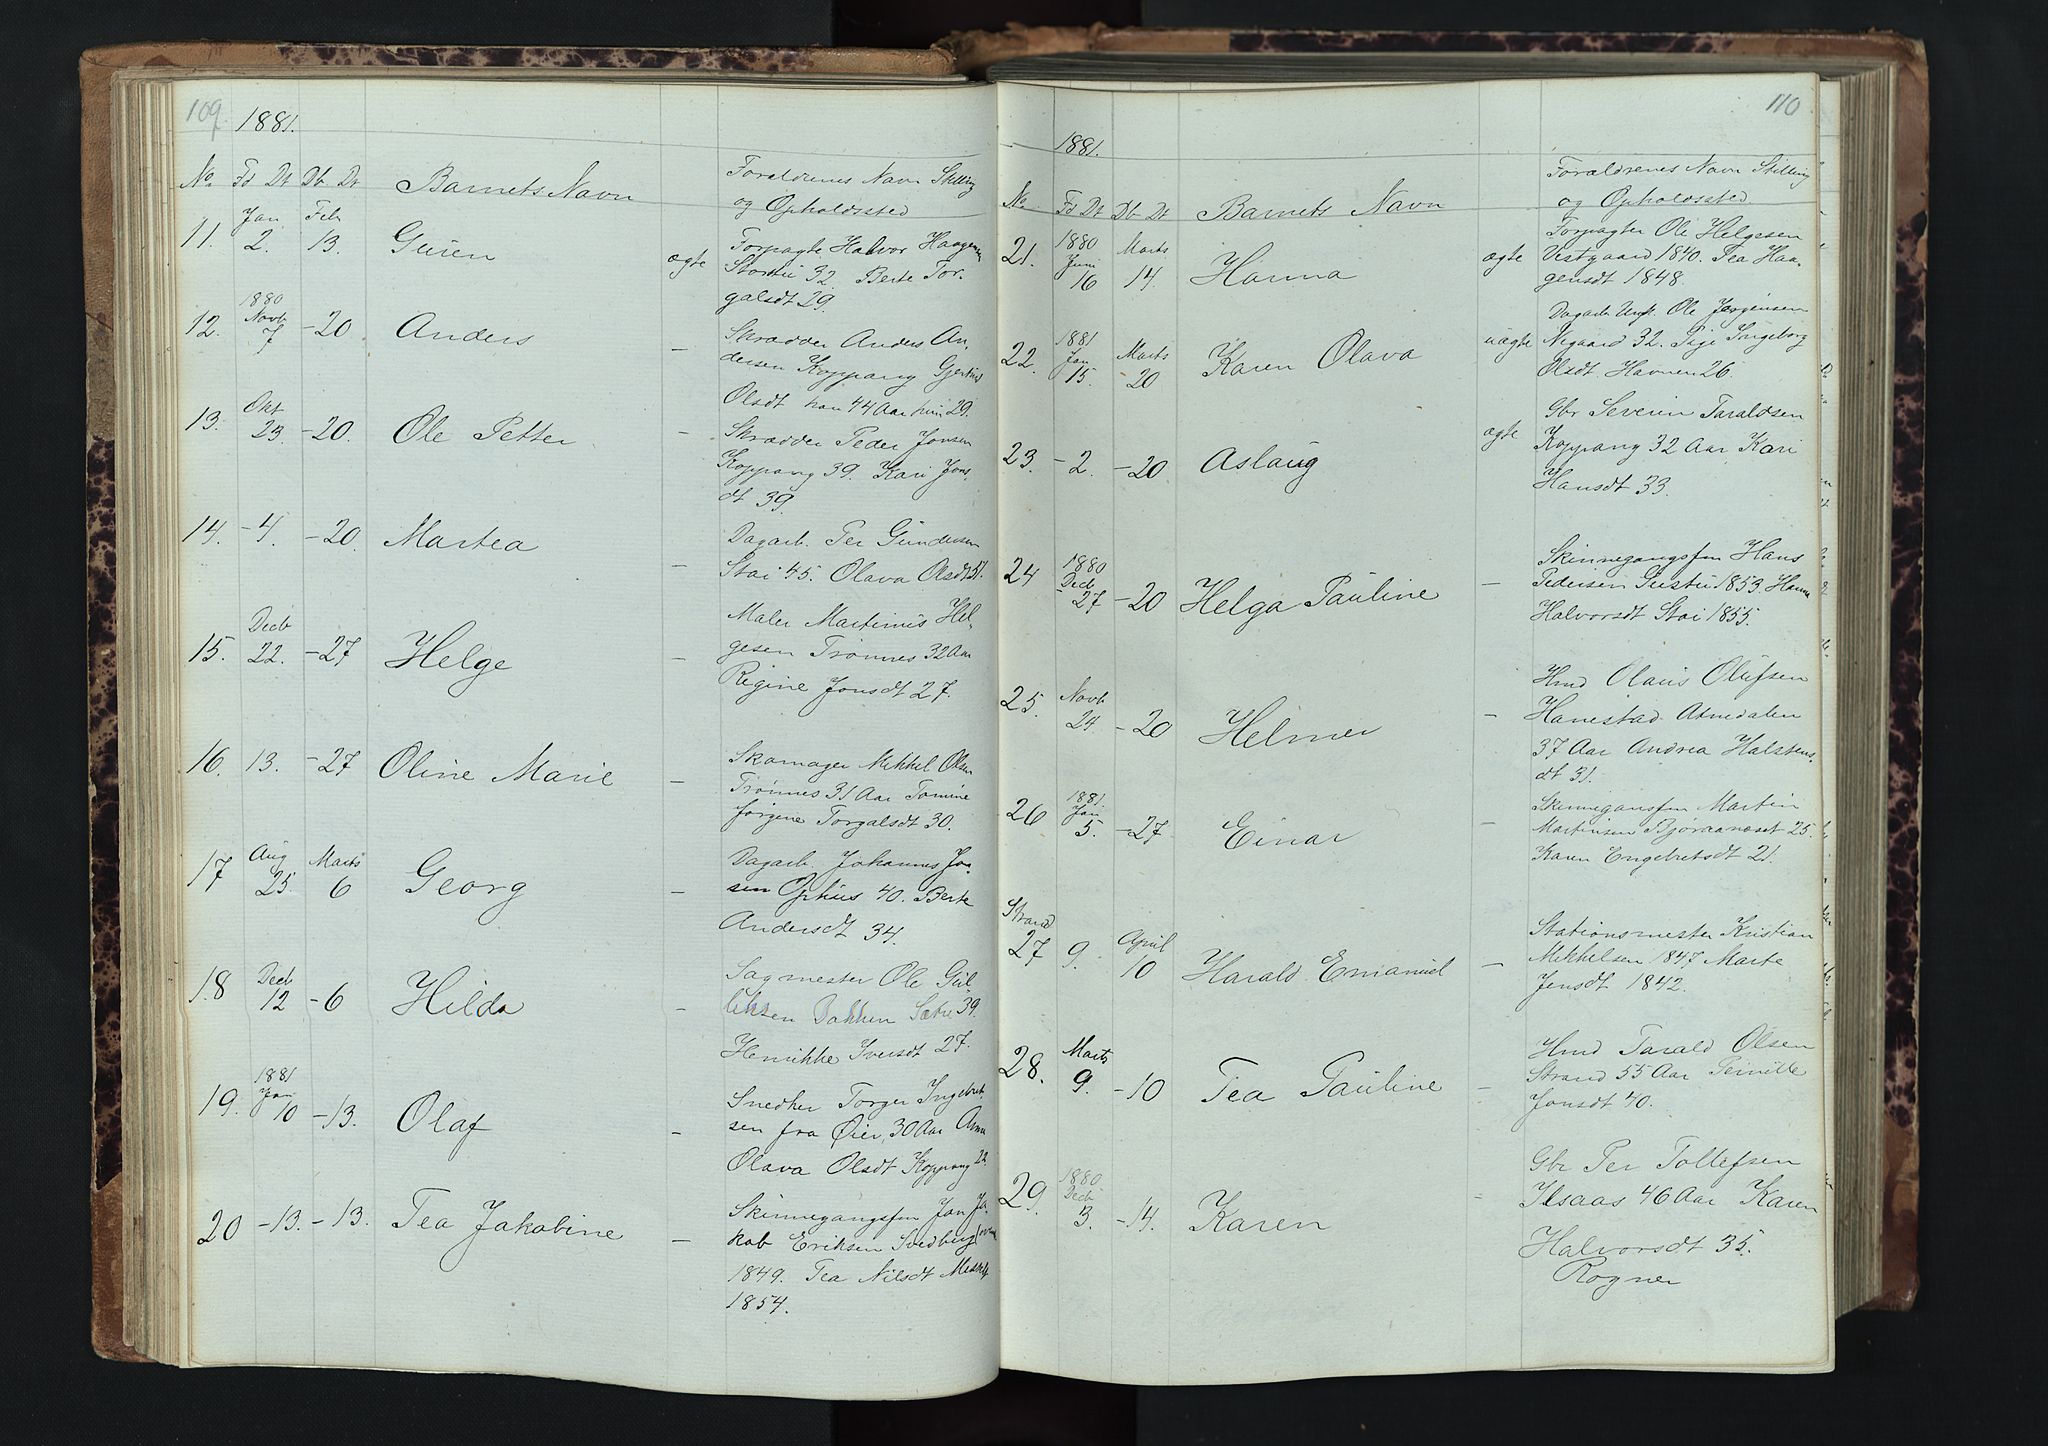 109
1881.
No Fd Dt Db Dt Barnets Navn Forældrenes Navn Stilling
og Opholdssted
11. Jan 2. Feb 13. Guren ægte Forpagte Halvor Haagens
Stortii 32. Berte Tor-
galsdt 29.
12. 1880 Novb 7 -20 Anders - Skrædder Anders An-
dersen Koppang Gjertrud
Olsdt han 44 Aar hun 29.
13. Okt 23. -20. Ole Petter - Skrædder Peder Jonsen
Koppang 39. Kari Jons-
dt 39.
14. -4. -20. Martea - Dagarb. Per Gundersen
Stai 45. Olava Olsdt 51.
15. Decb 22. -27 Helge - Maler Martinus Hel-
gesen Trønnes 32 Aar
Regine Jonsdt 27.
16. 13. -27 Oline Marie - Skomager Mikkel Olsen
Trønnes 31 Aar Tomine
Jørgine Torgalsdt 30.
17 Aug 25. Marts 6 Georg - Dagarb. Johannes Jo-
sen Ophus 40. Berte
Andersdt 34.
18 Decb 12 -6 Hilda - Sagmester Ole Gul-
liksen Bakken Sætre 39.
Henrikke Iversdt 27.
19. 1881 Jan 10 -13. Olaf - Snedker Torger Ingebret-
sen fra Øier, 30 Aar Anna
Olava Olsdt Koppang 22.
20 -13. -13. Tea Jakobine - Skinnegangsfm Jan Ja-
kob Eriksen Svedberg
1849. Tea Nilsdt
1854.
110
1881.
No. Fd Dt Db Dt Barnets Navn Forældrenes Navn Stilling
og Opholdssted.
21. 1880 Juni 16 Marts 14. Hanna ægte Forpagter Ole Helgesen
Vestgaard 1840. Tea Haa-
gensdt 1848.
22. 1881 Jan 15. Marts 20 Karen Olava uægte Dagarb Ungk. Ole Jørgensen
Negaard 32. Pige Ingeborg
Olsdt. Havnen 26.
23. -2. -20 Aslaug ægte Gbr Severin Taraldsen
Koppang 32 Aar Kari
Hansdt 33.
24 1880 Decb 27 -20 Helga Pauline - Skinnegangsfm Hans
Pedersen 1853. Hanna
Halvorsdt Stai 1855.
25. Novb 24. -20 Helmer - Hmd Olaus Olufsen
Hanestad Atnedalen
37 Aar Andrea Halstens-
dt 31.
26 1881. Jan 5. -27 Einar - Skinnegansfm Martin
Martinsen Bjøraanæset 25.
Karen Engebretsdt 21.
Strand
27 9. April 10 Harald Emanuel - Stationsmester Kristian
Mikkelsen 1847 Marte
Jensdt 1842.
28. Marts 9. -10 Tea Pauline - Hmd Tarald Olsen
Strand 55 Aar Pernille
Jonsdt 40.
29. 1880 Decb 3. -14. Karen - Gbr Per Tollefsen
Ilsaas 46 Aar Karen
Halvorsdt 35.
Rogner